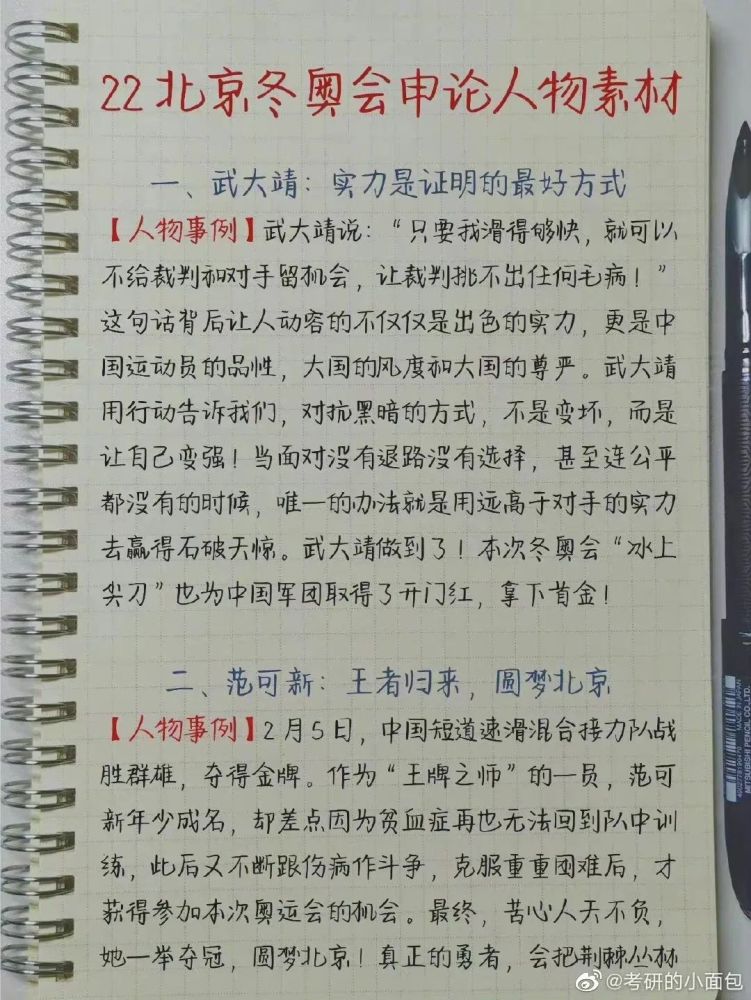 22北京冬奥会申论人物素材
一、武大靖：实力是证明的最好方式
【人物事例】武大靖说：“只要我滑得够快，就可以
不给裁判和对手留机会，让裁判挑不出任何毛病！”
这句话背后让人动容的不仅仅是出色的实力，更是中
国运动员的品性，大国的风度和大国的尊严。武大靖
用行动告诉我们，对抗黑暗的方式，不是变坏，而是
让自己变强！当面对没有退路没有选择，甚至连公平
都没有的时候，唯一的办法就是用远高于对手的实力
去赢得石破天惊。武大靖做到了！本次冬奥会“冰上
尖刀”也为中国军团取得了开门红，拿下首金！
二、范可新：王者归来，圆梦北京
【人物事例】2月5日，中国短道速滑混合接力队战
胜群雄，夺得金牌。作为“王牌之师”的一员，范可
新年少成名，却差点因为贫血症再也无法回到队中训
练，此后又不断跟伤病作斗争，克服重重困难后，才
获得参加本次奥运会的机会。最终，苦心人天不负，
她一举夺冠，圆梦北京！真正的勇者，会把荆棘丛林
MADE IN JAPAN
MITSUBISHI PENCIL CO.,LTD.
@考研的小面包